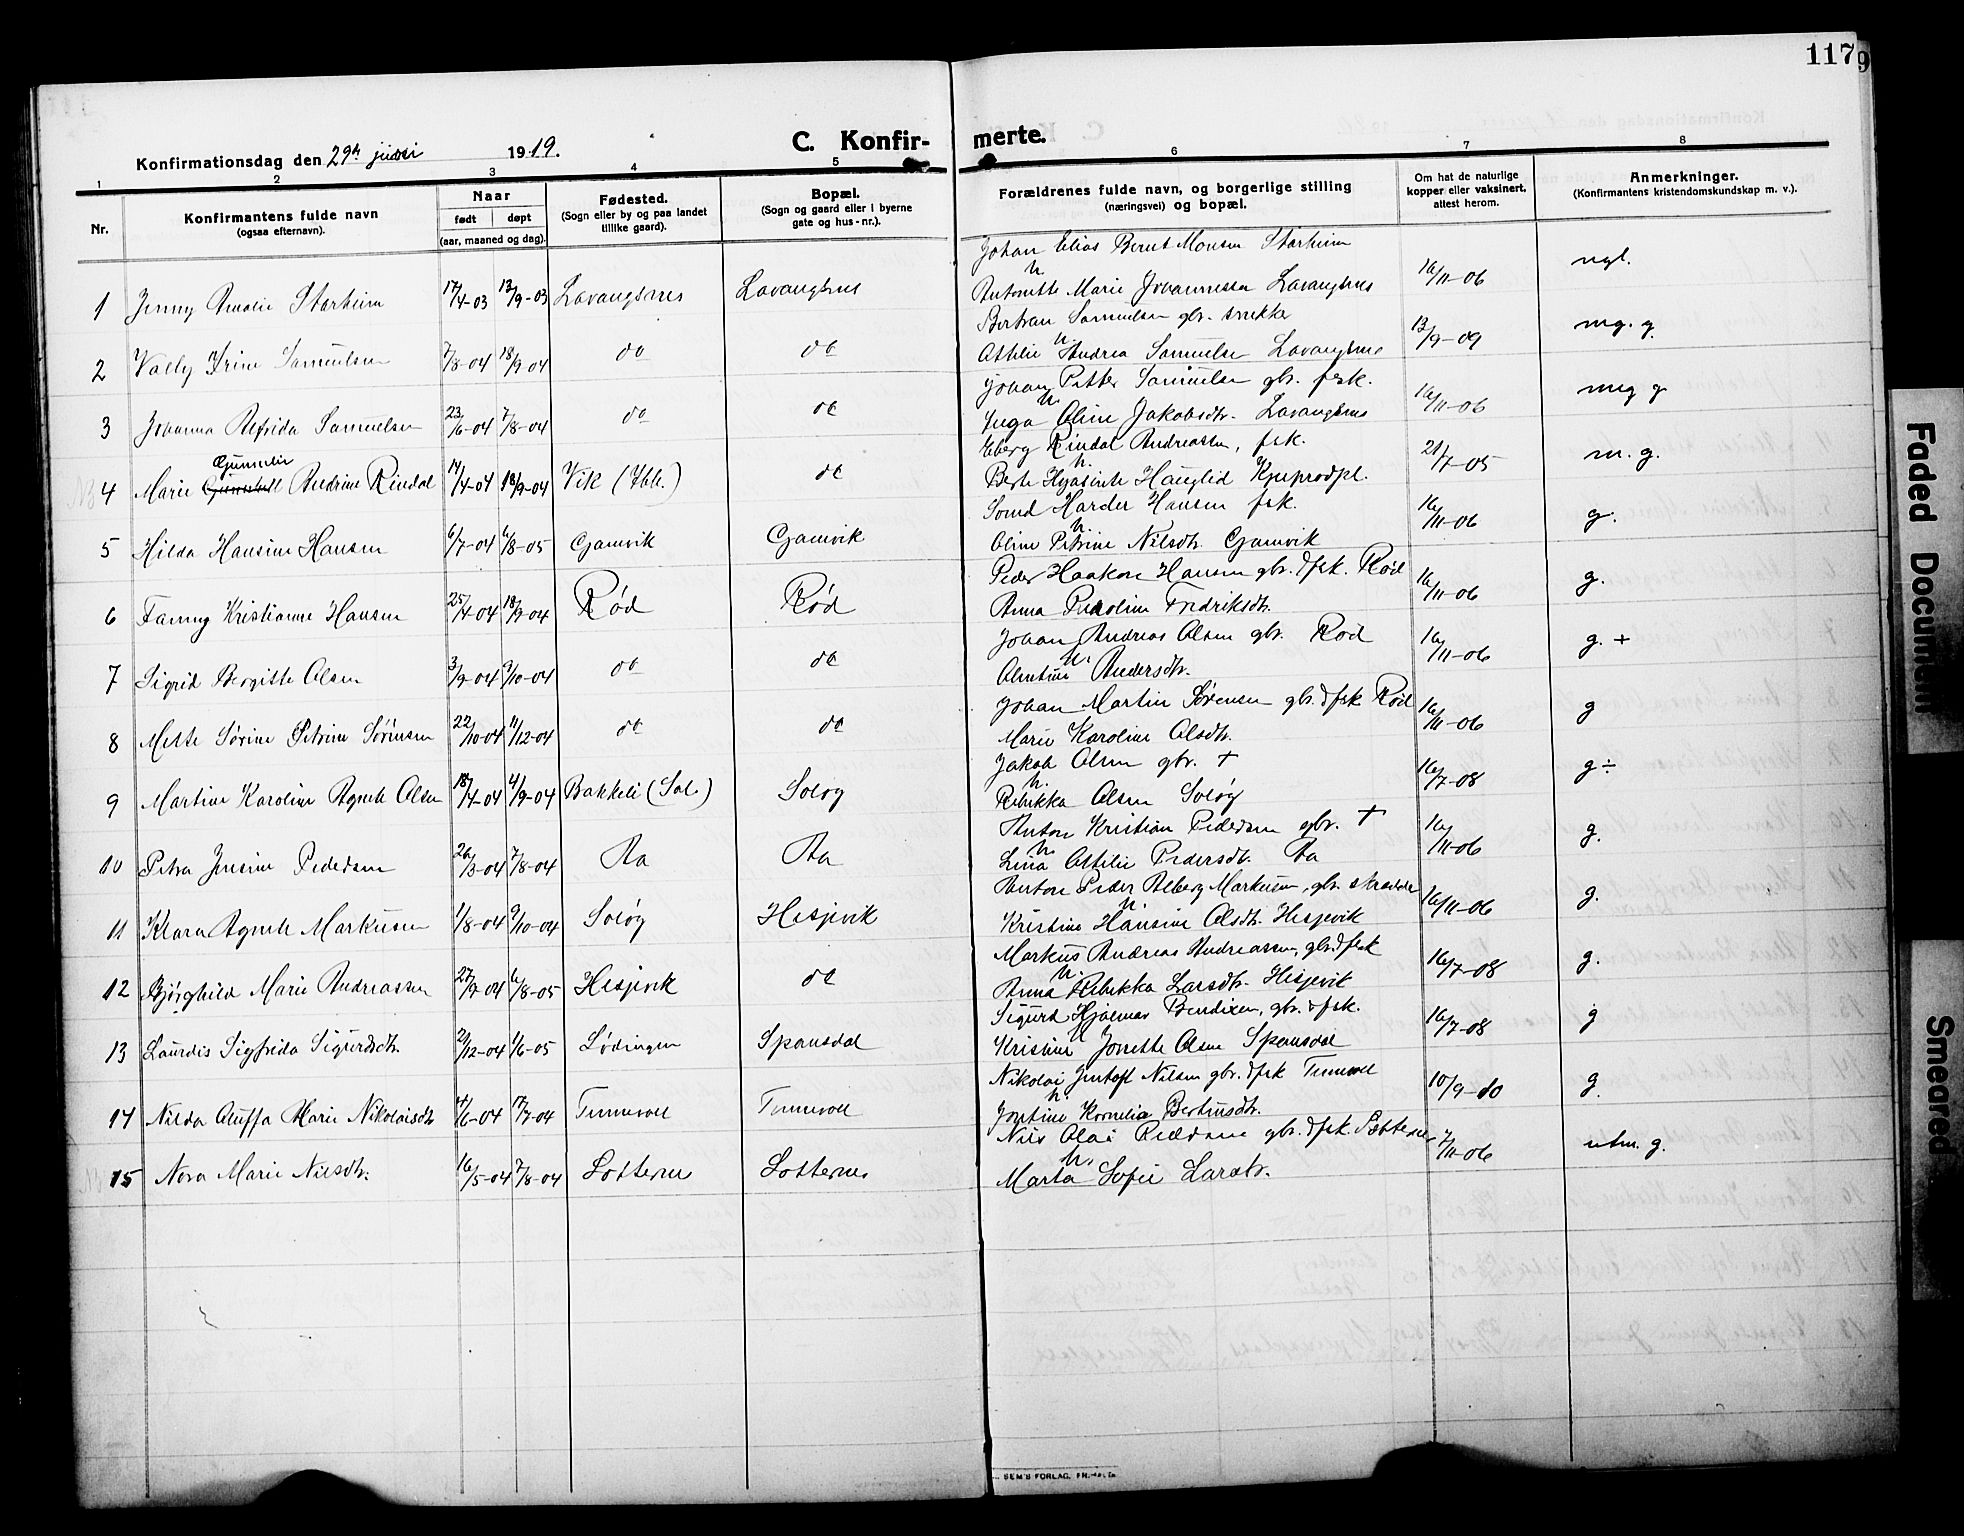 117
9
C. Konfir-
merte.
Konfirmationsdag den 29de juni 1919.
1 2 3 4 5 6 7 8
Nr.
Konfirmantens fulde navn
(ogsaa efternavn).
Naar
født døpt
(aar, maaned og dag).
Fødested.
(Sogn eller by og paa landet
tillike gaard).
Bopæl.
(Sogn og gaard eller i byerne
gate og hus-nr.).
Forældrenes fulde navn, og borgerlige stilling
(næringsvei) og bopæl.
Om hat de naturlige
kopper eller vaksinert,
attest herom.
Anmerkninger.
(Konfirmantens kristendomskundskap m. v.).
Johan Elias Bernt Monsen Storheim
1 Jenny Amalie Storheim 17/4-03 13/9-03 Lavangsnes Lavangsnes
h. Antonette Marie Johannessen Lavangsnes 16/11-06 mgl.
Bertran Samuelsen gbr. snekker
2 Vally Irine Samuelsen 7/8-04 18/9-04 do do
h. Othilie Andrea Samuelsen Lavangsnes 13/9-09 mg. g.
Johan Petter Samuelsen gbr. fisk.
3 Johanna Alfrida Samuelsen 23/6-04 7/8-04 do do
h. Inga Oline Jakobsdtr. Lavangsnes 16/11-06 meg g
Eberg Rindal Andreassen, fsk.
4 Marie Gunnelie Andrine Rindal 14/4-04 18/9-04 Vik (Ibb.) do
h. Berte Hyasinte Hauglid Kjuprodpl. 21/7-05 m. g.
Harder Hansen fsk.
5 Hilda Hansine Hansen 6/7-04 6/8-05 Gamvik Gamvik
h. Oline Petrine Nilsdtr. Gamvik 16/11-06 g.
Peder Haakon Hansen gbr. & fsk. Rød
6 Fanny Kristianne Hansen 25/4-04 18/9-04 Rød Rød
Anna Paroline Fredriksdtr. 16/11-06 g.
Johan Andreas Olsen gbr. Rød
7 Sigrid Bergitte Olsen 3/9-04 9/10-04 do do
h. Olentine Andersdtr. 16/11-06 g. +
Johan Martin Sørensen gbr. & fsk Rød
8 Mette Sørine Petrine Sørensen 22/10-04 11/12-04 do do
Marie Karoline Olsdtr. 16/11-06 g
Jakob Olsen gbr. +
9 Martine Karoline Agnete Olsen 18/4-04 4/9-04 Bakkeli (Sal.) Soløy
h. Rebekka Olsen Soløy 16/7-08 g ÷
Anton Kristian Pedersen gbr. +
10 Petra Jensine Pedersen 26/3-04 7/8-04 Aa Aa
h. Lina Othilie Pedersdtr. Aa 16/11-06 g.
Anton Peder Alberg Markusen, gbr. skrædder
11 Klara Agnete Markusen 1/8-04 9/10-04 Soløy Hesjevik
h. Kristine Hansine Olsdtr. Hesjevik 16/11-06 g.
Markus Andreas Andreassen, gbr. & fsk
12 Bjørghild Marie Andreassen 27/9-04 6/8-05 Hesjevik do
h. Anna Rebekka Larsdtr. Hesjevik 16/7-08 g.
Sigurd Hjalmar Bendixen, gbr. & fsk.
13 Laurdis Sigfrida Sigurdsdtr. 21/12-04 1/6-05 Lødingen Spansdal
h. Kristine Jonette Olsen Spansdal 16/7-08 g
Nikolai Jentoft Nilsen gbr. & fsk Tennevoll
14 Nilda Oluffa Marie Nikolaisdtr. 4/6-04 17/7-04 Tennevoll Tennevoll
h. Jentine Kornelia Bertinsdtr. 10/9-10 g.
Nils Olai Pedersen gbr. & fsk. Sotternes
15 Nora Marie Nilsdtr. 16/5-04 7/8-04 Sotternes Sotternes
h. Marta Sofie Larsdtr. 7/11-06 utm. g.
SEM'S FORLAG, FR.HALD.
Faded Document
Smeared